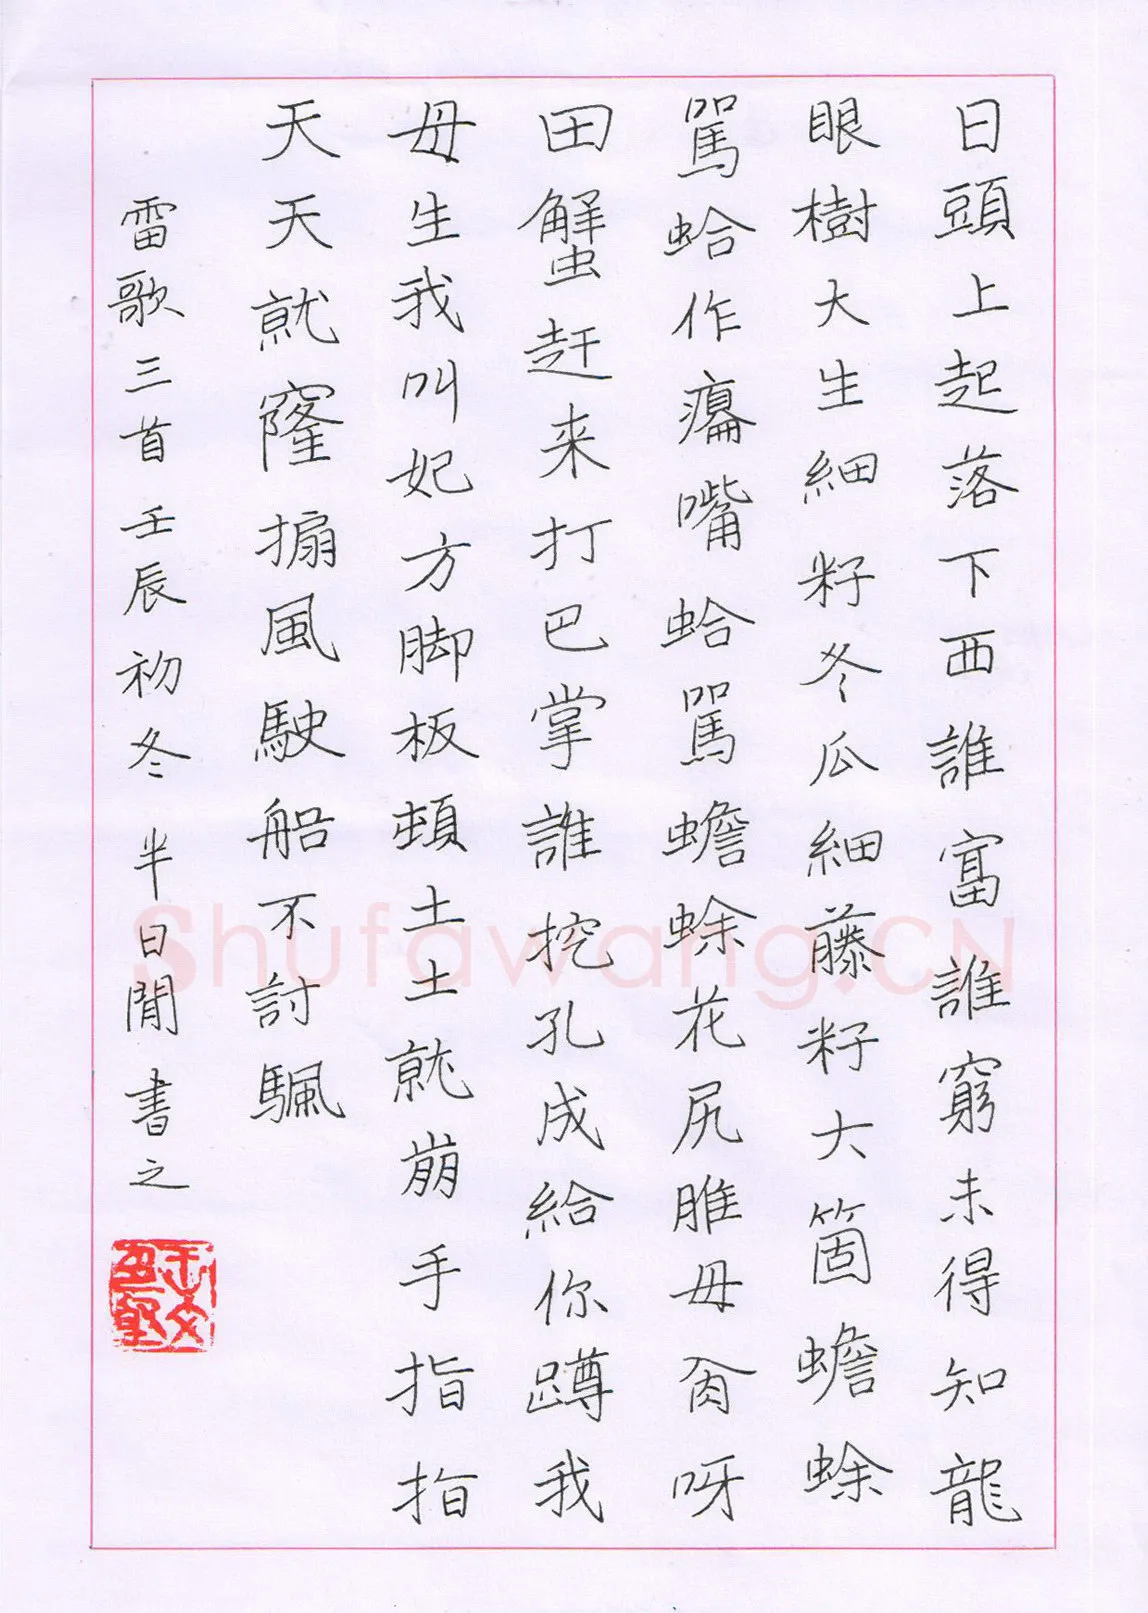 日頭上起落下西誰富誰窮未得知龍
眼樹大生細籽冬瓜細藤籽大箇蟾蜍
駡蛤作癟嘴蛤駡蟾蜍花尻脽毋肏呀
田蟹赶来打巴掌誰挖孔成給你蹲我
母生我叫妃方脚板頓土土就崩手指指
天天就窿搧風駛船不討颿
雷歌三首壬辰初冬 半日閒書之
Shufawang.CN